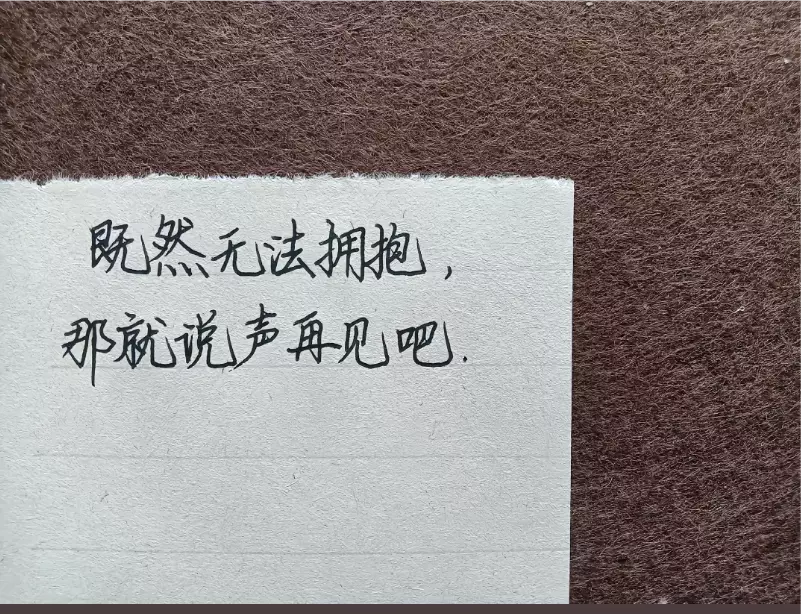 既然无法拥抱，
那就说声再见吧.